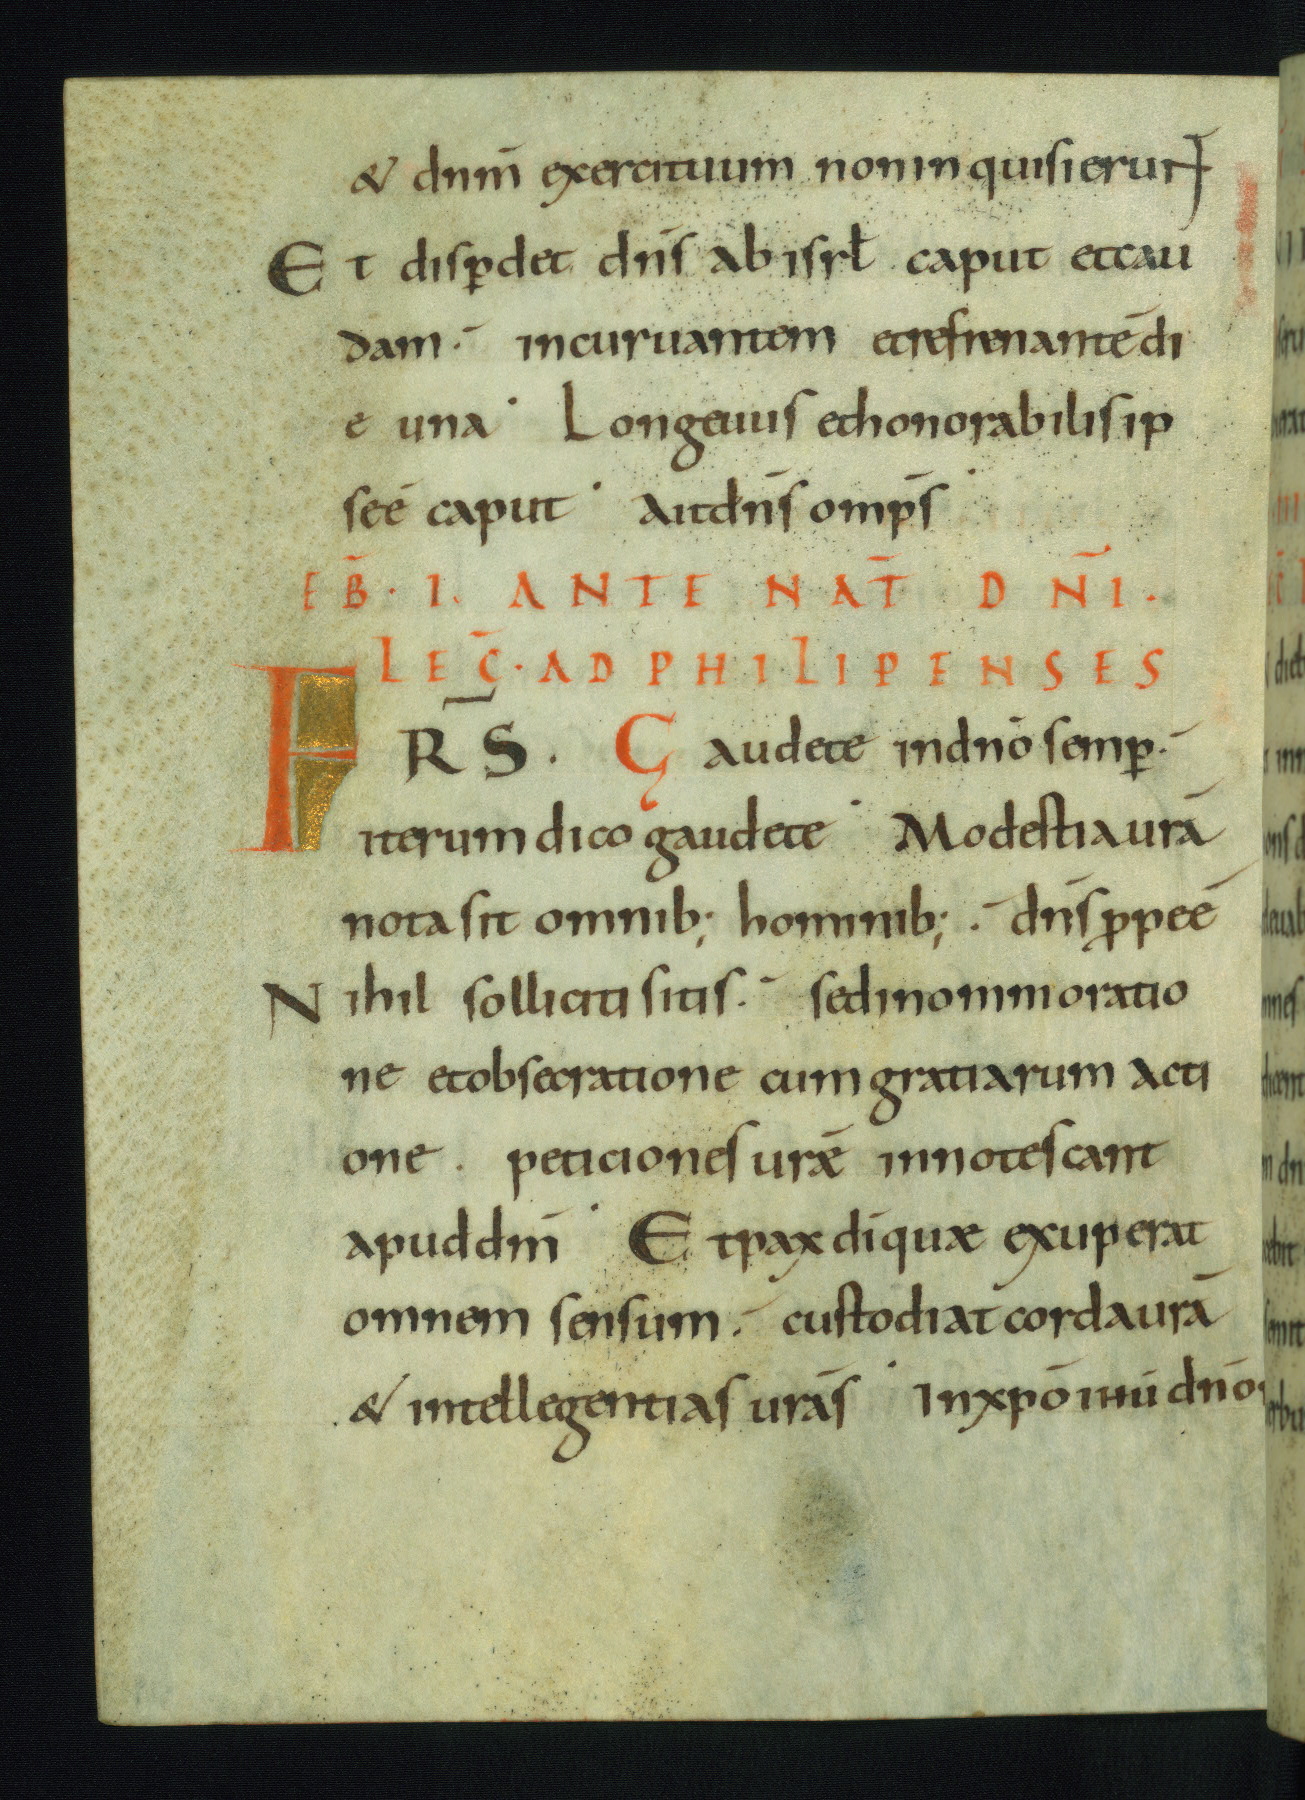 & dnm̄ exercituum non inquisierunt
Et disꝑdet dn̄s ab isrl̄ caput et cau
dam · incuruantem et refrenantē di
e una · Longeuus et honorabilis ip
se ē caput · Ait dn̄s omp̄s ·
EB̄ · I · ANTE NAT̄ DN̄I ·
LEC̄ · AD PHILIPENSES
FR̄S · Gaudete in dnō semꝑ ·
iterum dico gaudete · Modestia urā
nota sit omnib; hominib; · dn̄s ꝓpe ē
Nihil solliciti sitis · sed in omni oratio
ne et obsecratione cum gratiarum acti
one · peticiones urǣ innotescant
apud dm̄ · Et pax dī quæ exuperat
omnem sensum · custodiat corda urā
& intellegentias urās · In xp̄o ihū dnō